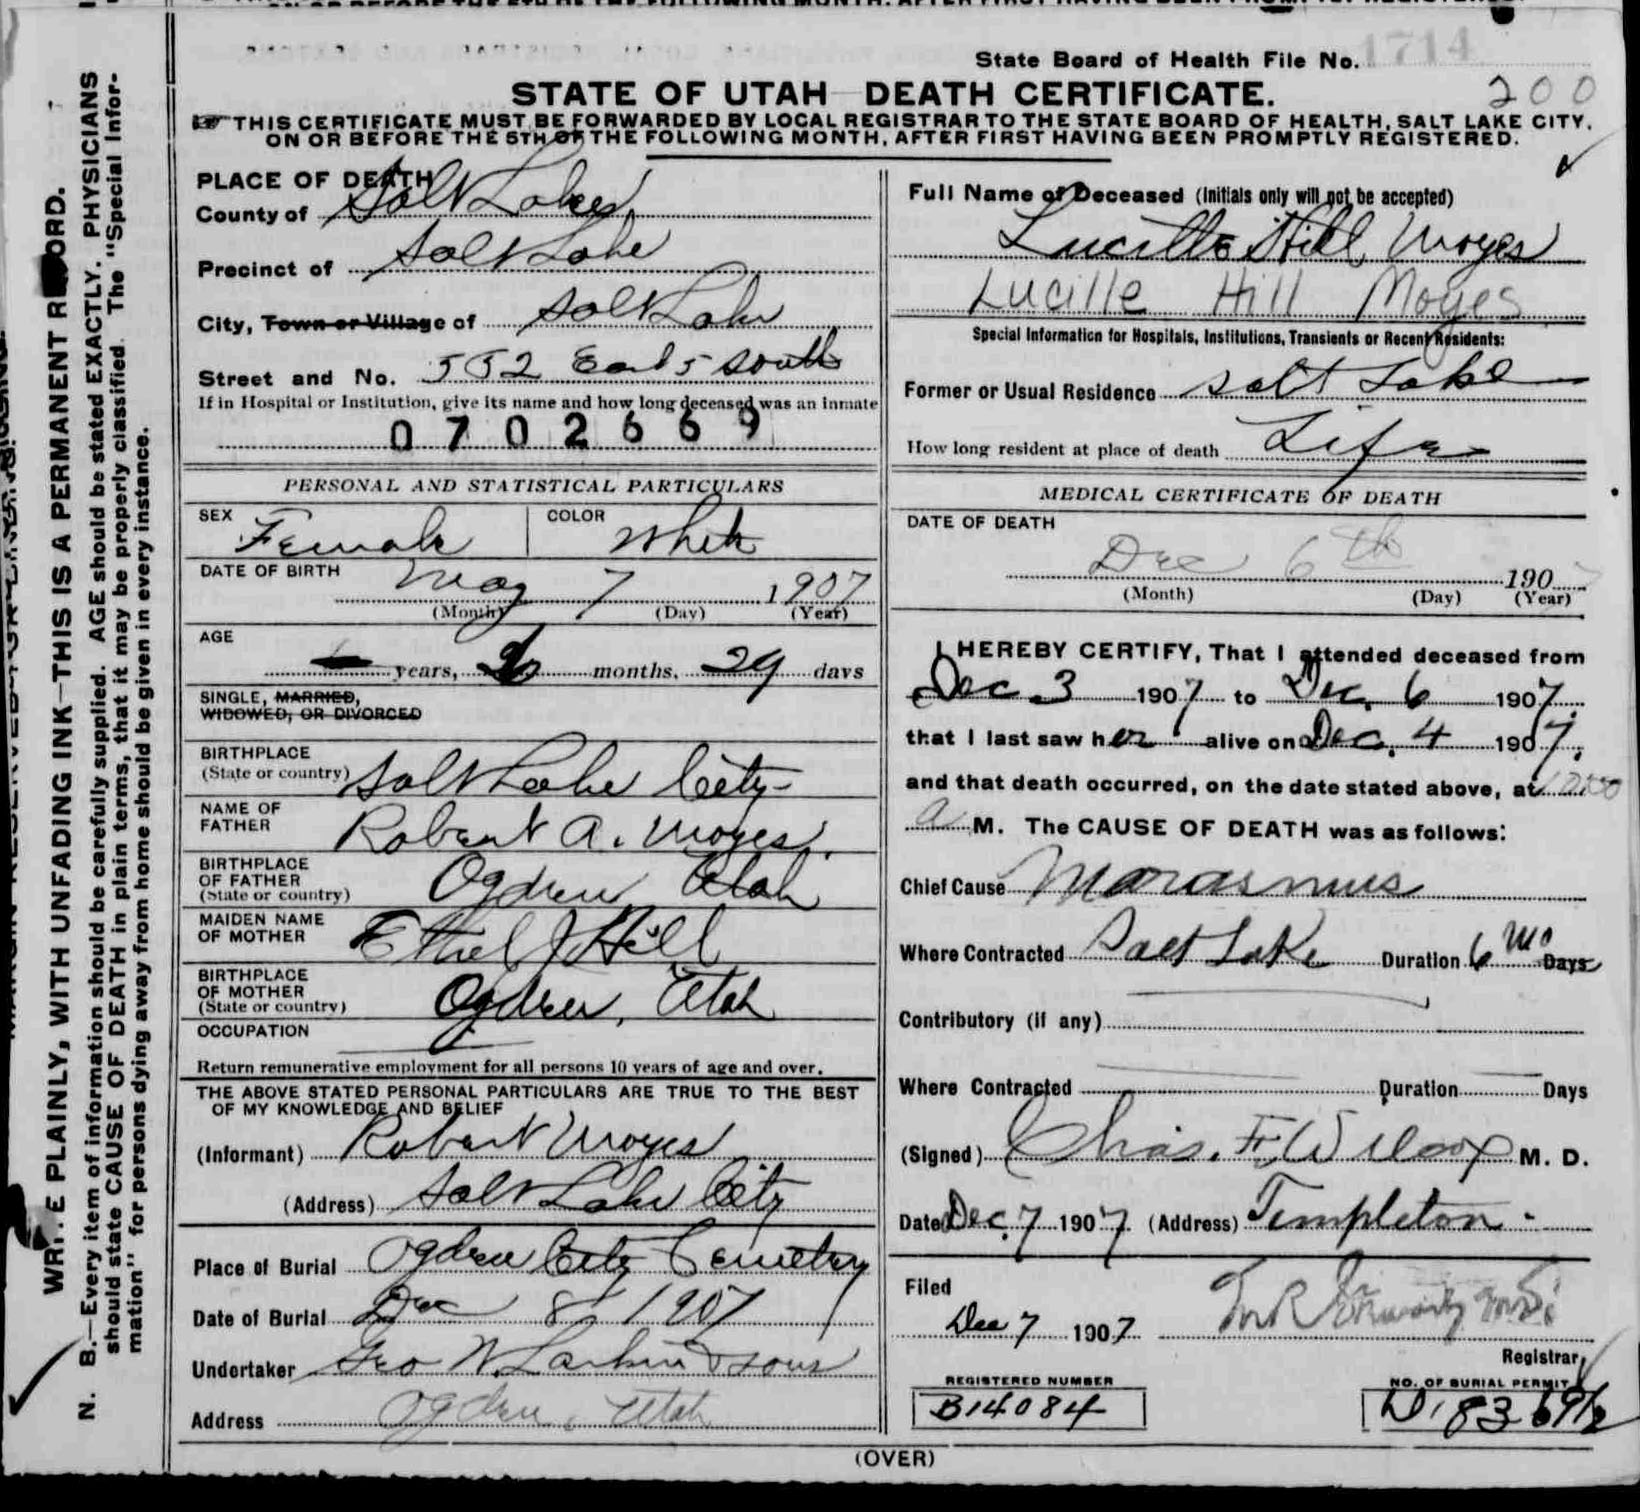 State Board of Health File No. 1714
200
STATE OF UTAH DEATH CERTIFICATE.
THIS CERTIFICATE MUST BE FORWARDED BY LOCAL REGISTRAR TO THE STATE BOARD OF HEALTH, SALT LAKE CITY,
ON OR BEFORE THE 5TH OF THE FOLLOWING MONTH, AFTER FIRST HAVING BEEN PROMPTLY REGISTERED.
WRITE PLAINLY, WITH UNFADING INK—THIS IS A PERMANENT RECORD.
N. B.—Every item of information should be carefully supplied. AGE should be stated EXACTLY. PHYSICIANS
should state CAUSE OF DEATH in plain terms, that it may be properly classified. The "Special Infor-
mation" for persons dying away from home should be given in every instance.
PLACE OF DEATH
County of Salt Lake
Precinct of Salt Lake
City, Town or Village of Salt Lake
Street and No. 552 East 5 South
If in Hospital or Institution, give its name and how long deceased was an inmate
0702669
PERSONAL AND STATISTICAL PARTICULARS
SEX Female COLOR White
DATE OF BIRTH May 7 1907
(Month) (Day) (Year)
AGE
years, months, 29 days
SINGLE, MARRIED,
WIDOWED, OR DIVORCED
BIRTHPLACE
(State or country) Salt Lake City
NAME OF
FATHER Robert A. Moyes
BIRTHPLACE
OF FATHER
(State or country) Ogden Utah
MAIDEN NAME
OF MOTHER Ethel J Hill
BIRTHPLACE
OF MOTHER
(State or country) Ogden, Utah
OCCUPATION
Return remunerative employment for all persons 10 years of age and over.
THE ABOVE STATED PERSONAL PARTICULARS ARE TRUE TO THE BEST
OF MY KNOWLEDGE AND BELIEF
(Informant) Robert Moyes
(Address) Salt Lake City
Place of Burial Ogden City Cemetery
Date of Burial Dec 8 1907
Undertaker Geo W. Larkin & Sons
Address Ogden, Utah
Full Name of Deceased (Initials only will not be accepted)
Lucille Hill Moyes
Lucille Hill Moyes
Special Information for Hospitals, Institutions, Transients or Recent Residents:
Former or Usual Residence Salt Lake
How long resident at place of death Life
MEDICAL CERTIFICATE OF DEATH
DATE OF DEATH
Dec 6th 1907
(Month) (Day) (Year)
I HEREBY CERTIFY, That I attended deceased from
Dec. 3 1907 to Dec. 6 1907,
that I last saw her alive on Dec. 4 1907,
and that death occurred, on the date stated above, at
a M. The CAUSE OF DEATH was as follows:
Chief Cause Marasmus
Where Contracted Salt Lake Duration 6 Mo Days
Contributory (if any)
Where Contracted Duration Days
(Signed) Chas. F. Wilcox M. D.
Date Dec. 7 1907 (Address) Templeton
Filed
Dec 7 1907
Registrar
REGISTERED NUMBER
B14084
NO. OF BURIAL PERMIT
(OVER)